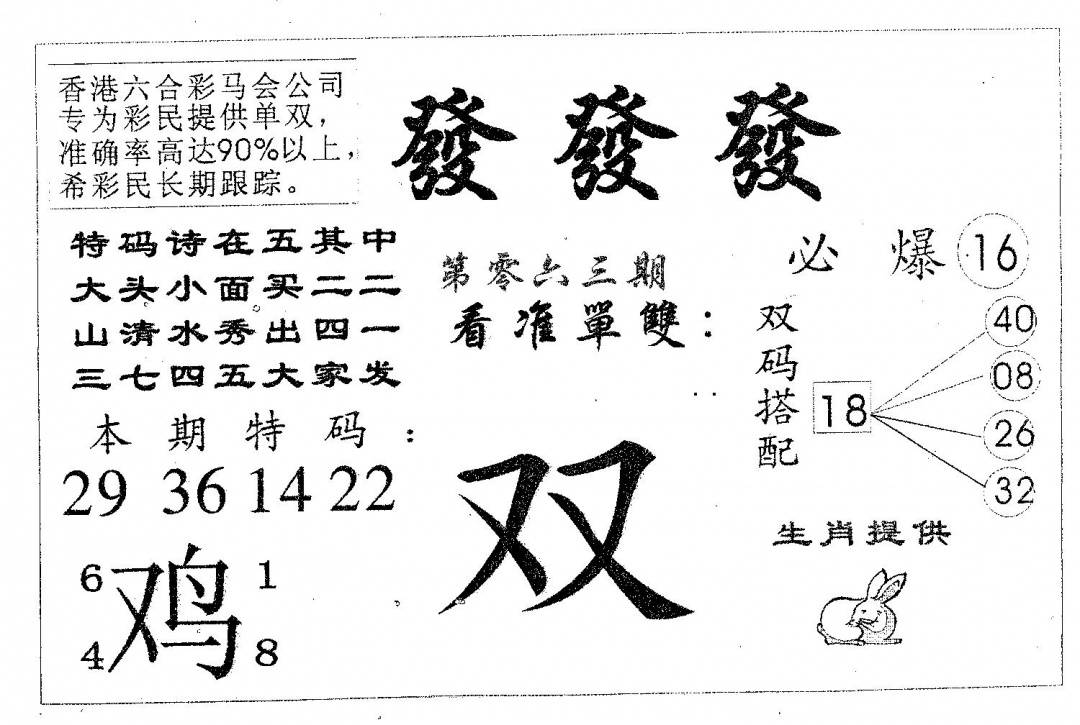 香港六合彩马会公司
专为彩民提供单双，
准确率高达90%以上，
希彩民长期跟踪。
發 發 發
特码诗在五其中
大头小面买二二
山清水秀出四一
三七四五大家发
第零六三期
看准單雙：
必 爆 16
双码搭配
18
40
08
26
32
本期特码：
29 36 14 22
双
生肖提供
6 1
鸡
4 8